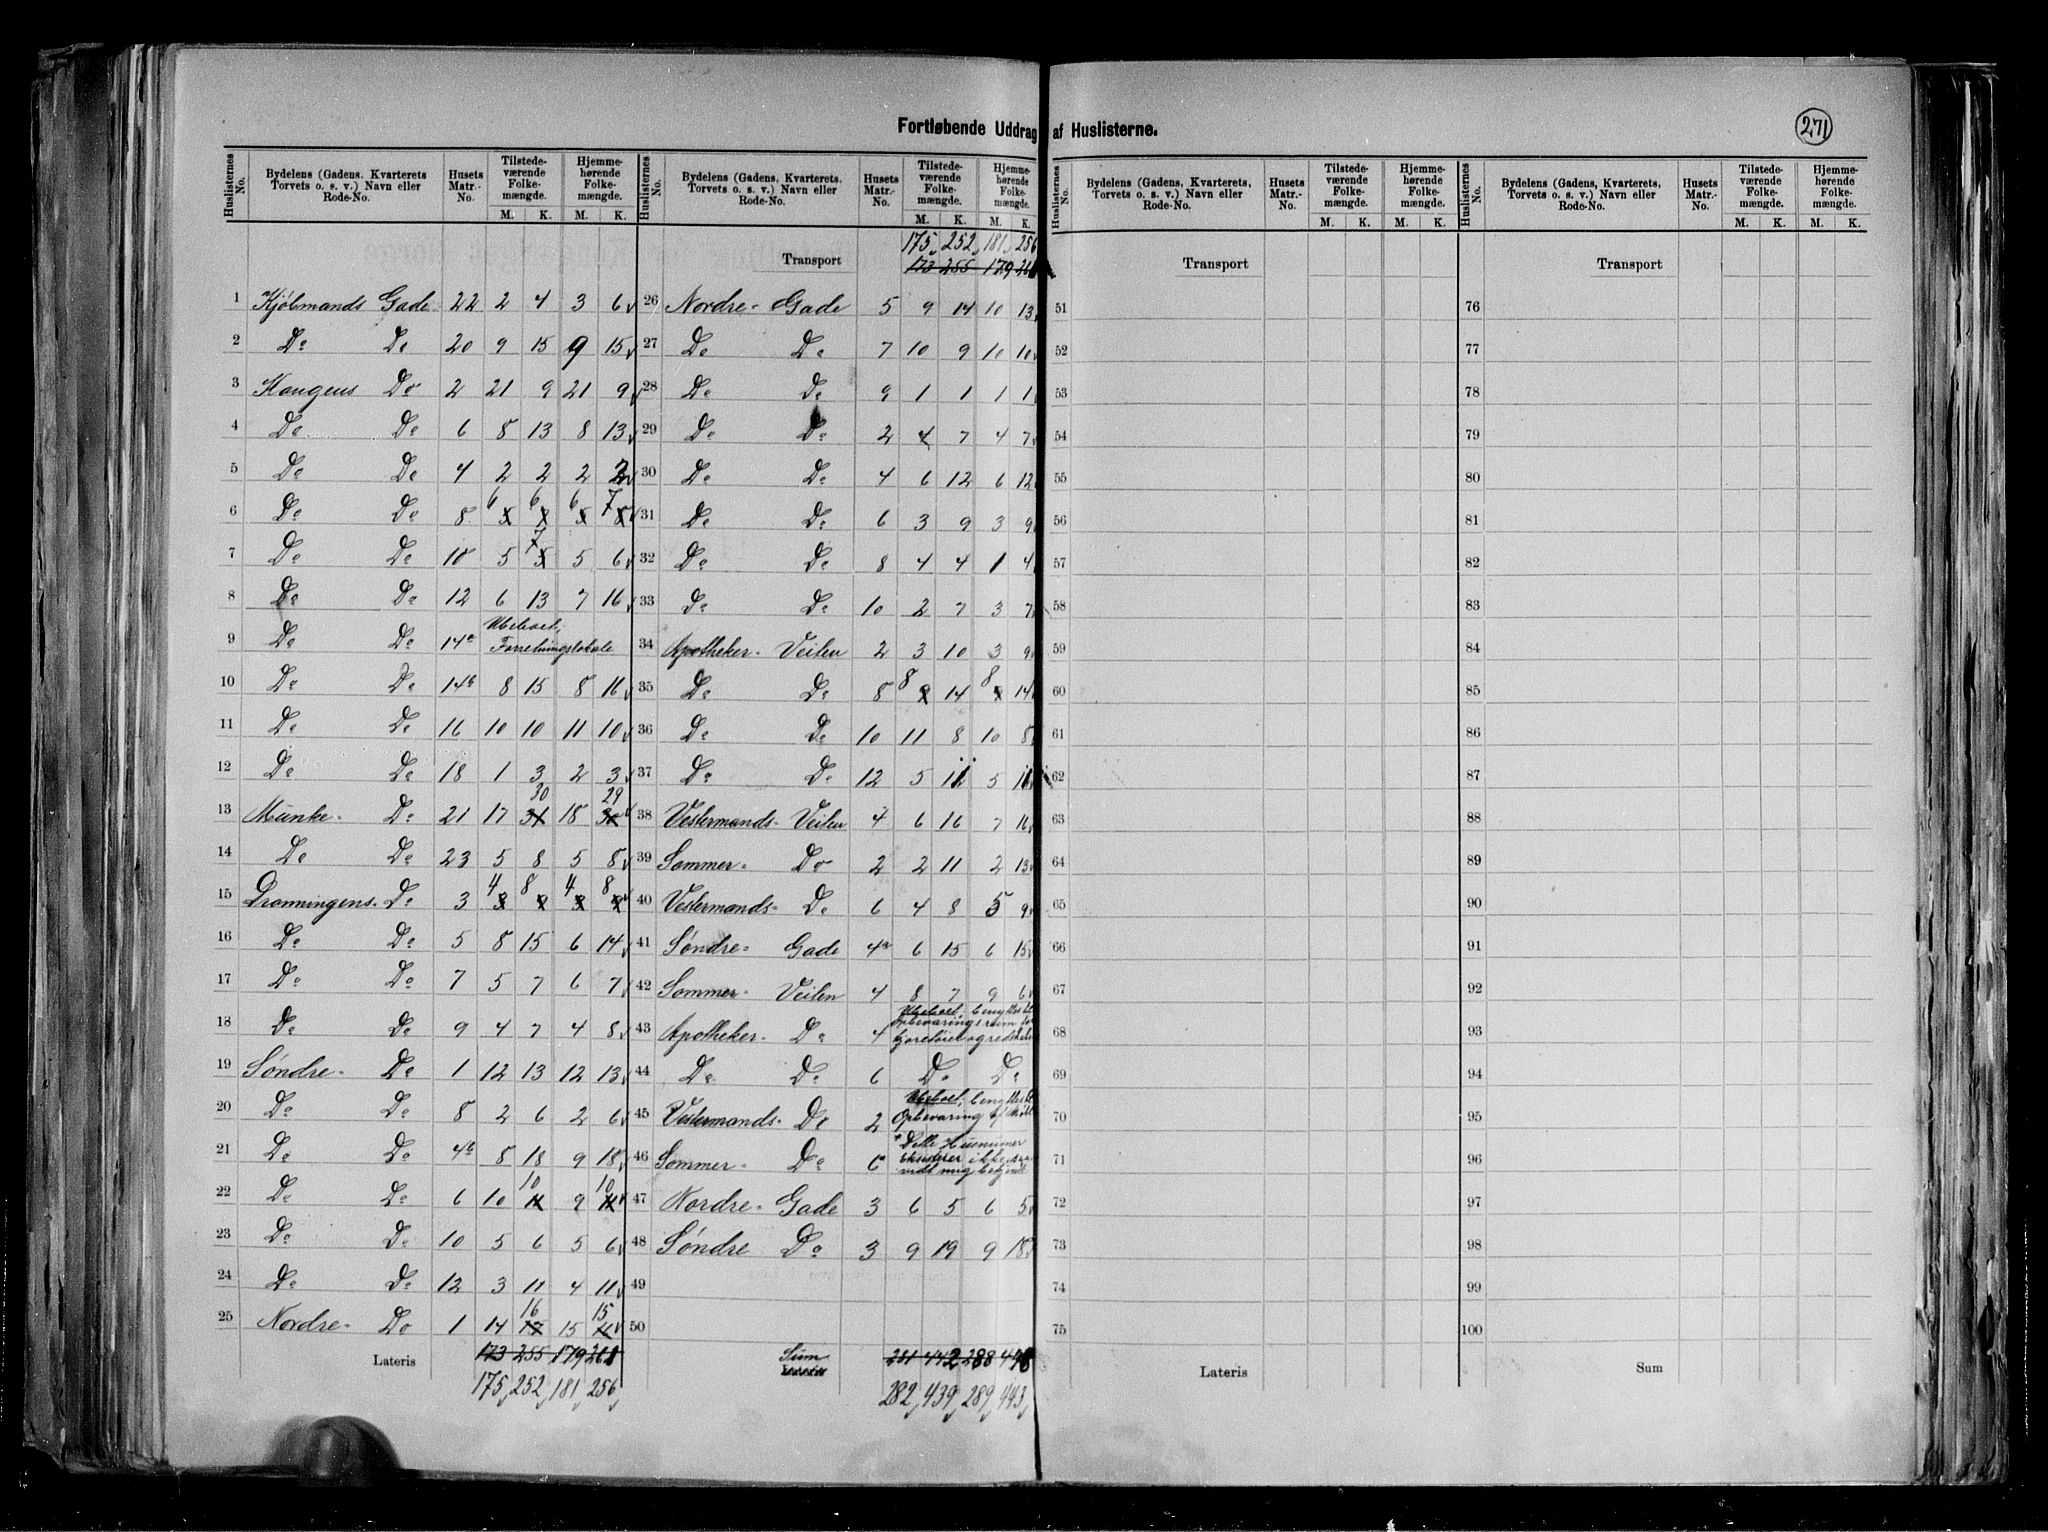 Fortløbende Uddrag af Huslisterne.
271
Huslisternes No. Bydelens (Gadens, Kvarterets, Torvets o. s. v.) Navn eller Rode-No. Husets Matr.-No. Tilstedeværende Folkemængde. M. K. Hjemmehørende Folkemængde. M. K.
1 Kjøbmands Gade 22 2 4 3 6
2 Do Do 20 9 15 9 15
3 Kongens Do 2 21 9 21 9
4 Do Do 6 8 13 8 13
5 Do Do 4 2 2 2 2
6 Do Do 8 6 6 6 7
7 Do Do 10 5 7 5 6
8 Do Do 12 6 13 7 16
9 Do Do 14a Ubeboet, Forretningslokale
10 Do Do 14b 8 15 8 16
11 Do Do 16 10 10 11 10
12 Do Do 18 1 3 2 3
13 Munke- Do 21 17 30 18 29
14 Do Do 23 5 8 5 8
15 Dronningens- Do 3 4 8 4 8
16 Do Do 5 8 15 6 14
17 Do Do 7 5 7 6 7
18 Do Do 9 4 7 4 8
19 Søndre- Do 1 12 13 12 13
20 Do Do 8 2 6 2 6
21 Do Do 4b 8 18 9 18
22 Do Do 6 10 10 9 10
23 Do Do 10 5 6 5 6
24 Do Do 12 3 11 4 11
25 Nordre- Do 1 14 16 15 15
Lateris 173 255 179 261
175 252 181 256
Huslisternes No. Bydelens (Gadens, Kvarterets, Torvets o. s. v.) Navn eller Rode-No. Husets Matr.-No. Tilstedeværende Folkemængde. M. K. Hjemmehørende Folkemængde. M. K.
175 252 181 256
Transport 173 255 179 261
26 Nordre- Gade 5 9 14 10 13
27 Do Do 7 10 9 10 10
28 Do Do 9 1 1 1 1
29 Do Do 2 4 7 4 7
30 Do Do 4 6 12 6 12
31 Do Do 6 3 9 3 9
32 Do Do 8 4 4 1 4
33 Do Do 10 2 7 3 7
34 Apotheker- Veiten 2 3 10 3 9
35 Do Do 8 8 14 8 14
36 Do Do 10 11 8 10 8
37 Do Do 12 5 11 5 11
38 Vestermands- Veiten 4 6 16 7 16
39 Sommer- Do 2 2 11 2 13
40 Vestermands- Do 6 4 8 5 9
41 Søndre- Gade 4a 6 15 6 15
42 Sommer- Veiten 4 8 7 9 6
43 Apotheker- Do 4 Ubeboet, benyttes til opbevaringsrum for kjøretøier og redskaber
44 Do Do 6 Do Do
45 Vestermands- Do 2 Ubeboet, benyttes til Opbevaring af
46 Sommer- Do 6 Dette Husnumer eksisterer ikke saavidt mig bekjendt
47 Nordre- Gade 3 6 5 6 5
48 Søndre Do 3 9 19 9 18
49
50
Sum 281 442 288 448
282 439 289 443
Huslisternes No. Bydelens (Gadens, Kvarterets, Torvets o. s. v.) Navn eller Rode-No. Husets Matr.-No. Tilstedeværende Folkemængde. M. K. Hjemmehørende Folkemængde. M. K.
Transport
51
52
53
54
55
56
57
58
59
60
61
62
63
64
65
66
67
68
69
70
71
72
73
74
75
Lateris
Huslisternes No. Bydelens (Gadens, Kvarterets, Torvets o. s. v.) Navn eller Rode-No. Husets Matr.-No. Tilstedeværende Folkemængde. M. K. Hjemmehørende Folkemængde. M. K.
Transport
76
77
78
79
80
81
82
83
84
85
86
87
88
89
90
91
92
93
94
95
96
97
98
99
100
Sum